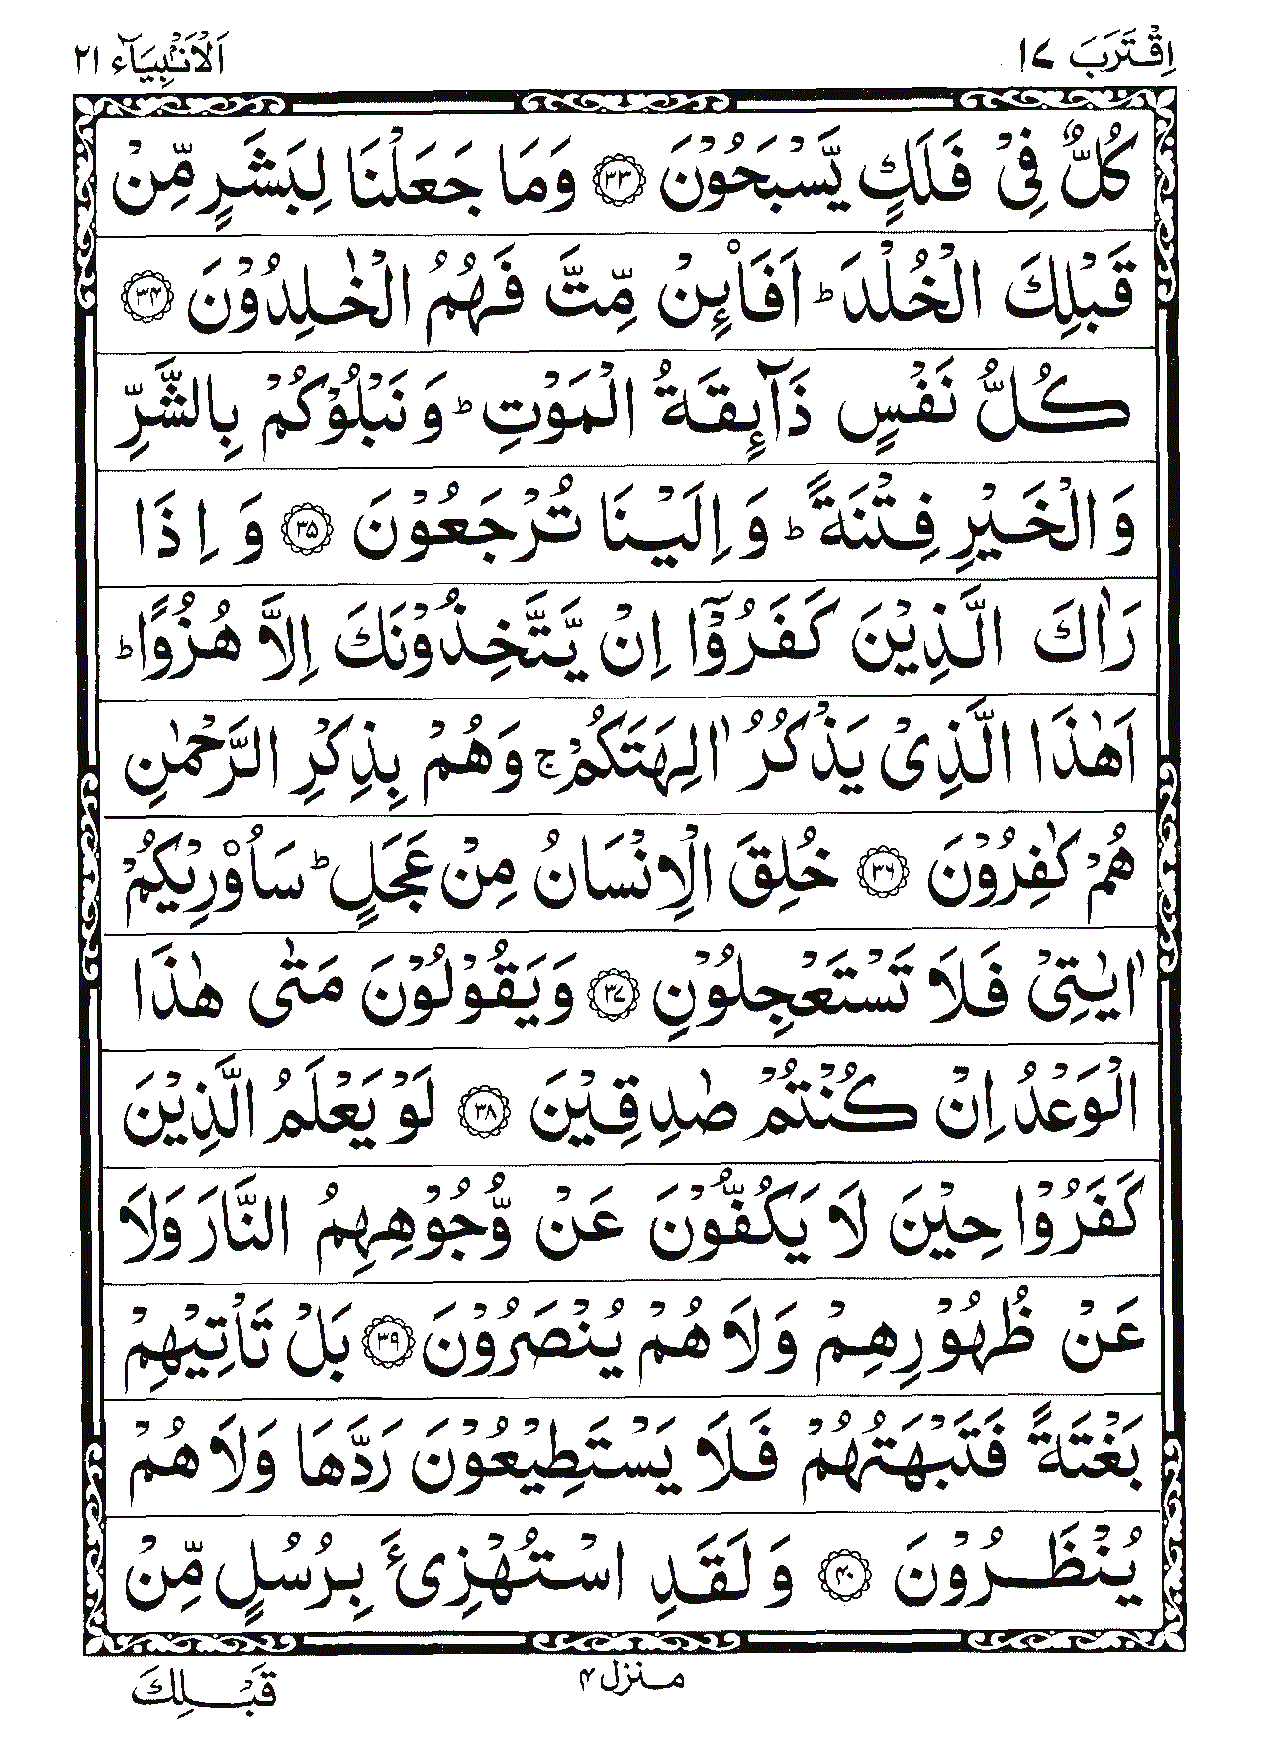 اِقْتَرَبَ ١٧
اَلْاَنْۢبِيَآء ٢١
كُلٌّ فِیْ فَلَكٍ یَّسْبَحُوْنَ ۝٣٣ وَمَا جَعَلْنَا لِبَشَرٍ مِّنْ
قَبْلِكَ الْخُلْدَ ؕ اَفَا۟ئِنْ مِّتَّ فَهُمُ الْخٰلِدُوْنَ ۝٣٤
كُلُّ نَفْسٍ ذَآىِٕقَةُ الْمَوْتِ ؕ وَنَبْلُوْكُمْ بِالشَّرِّ
وَالْخَیْرِ فِتْنَةً ؕ وَاِلَیْنَا تُرْجَعُوْنَ ۝٣٥ وَ اِذَا
رَاٰكَ الَّذِیْنَ كَفَرُوْۤا اِنْ یَّتَّخِذُوْنَكَ اِلَّا هُزُوًا ؕ
اَهٰذَا الَّذِیْ یَذْكُرُ اٰلِهَتَكُمْ ۚ وَهُمْ بِذِكْرِ الرَّحْمٰنِ
هُمْ كٰفِرُوْنَ ۝٣٦ خُلِقَ الْاِنْسَانُ مِنْ عَجَلٍ ؕ سَاُورِیْكُمْ
اٰیٰتِیْ فَلَا تَسْتَعْجِلُوْنِ ۝٣٧ وَیَقُوْلُوْنَ مَتٰى هٰذَا
الْوَعْدُ اِنْ كُنْتُمْ صٰدِقِیْنَ ۝٣٨ لَوْ یَعْلَمُ الَّذِیْنَ
كَفَرُوْا حِیْنَ لَا یَكُفُّوْنَ عَنْ وُّجُوْهِهِمُ النَّارَ وَلَا
عَنْ ظُهُوْرِهِمْ وَلَا هُمْ یُنْصَرُوْنَ ۝٣٩ بَلْ تَاْتِیْهِمْ
بَغْتَةً فَتَبْهَتُهُمْ فَلَا یَسْتَطِیْعُوْنَ رَدَّهَا وَلَا هُمْ
یُنْظَرُوْنَ ۝٤٠ وَ لَقَدِ اسْتُهْزِئَ بِرُسُلٍ مِّنْ
منزل ٤
قَبْلِكَ